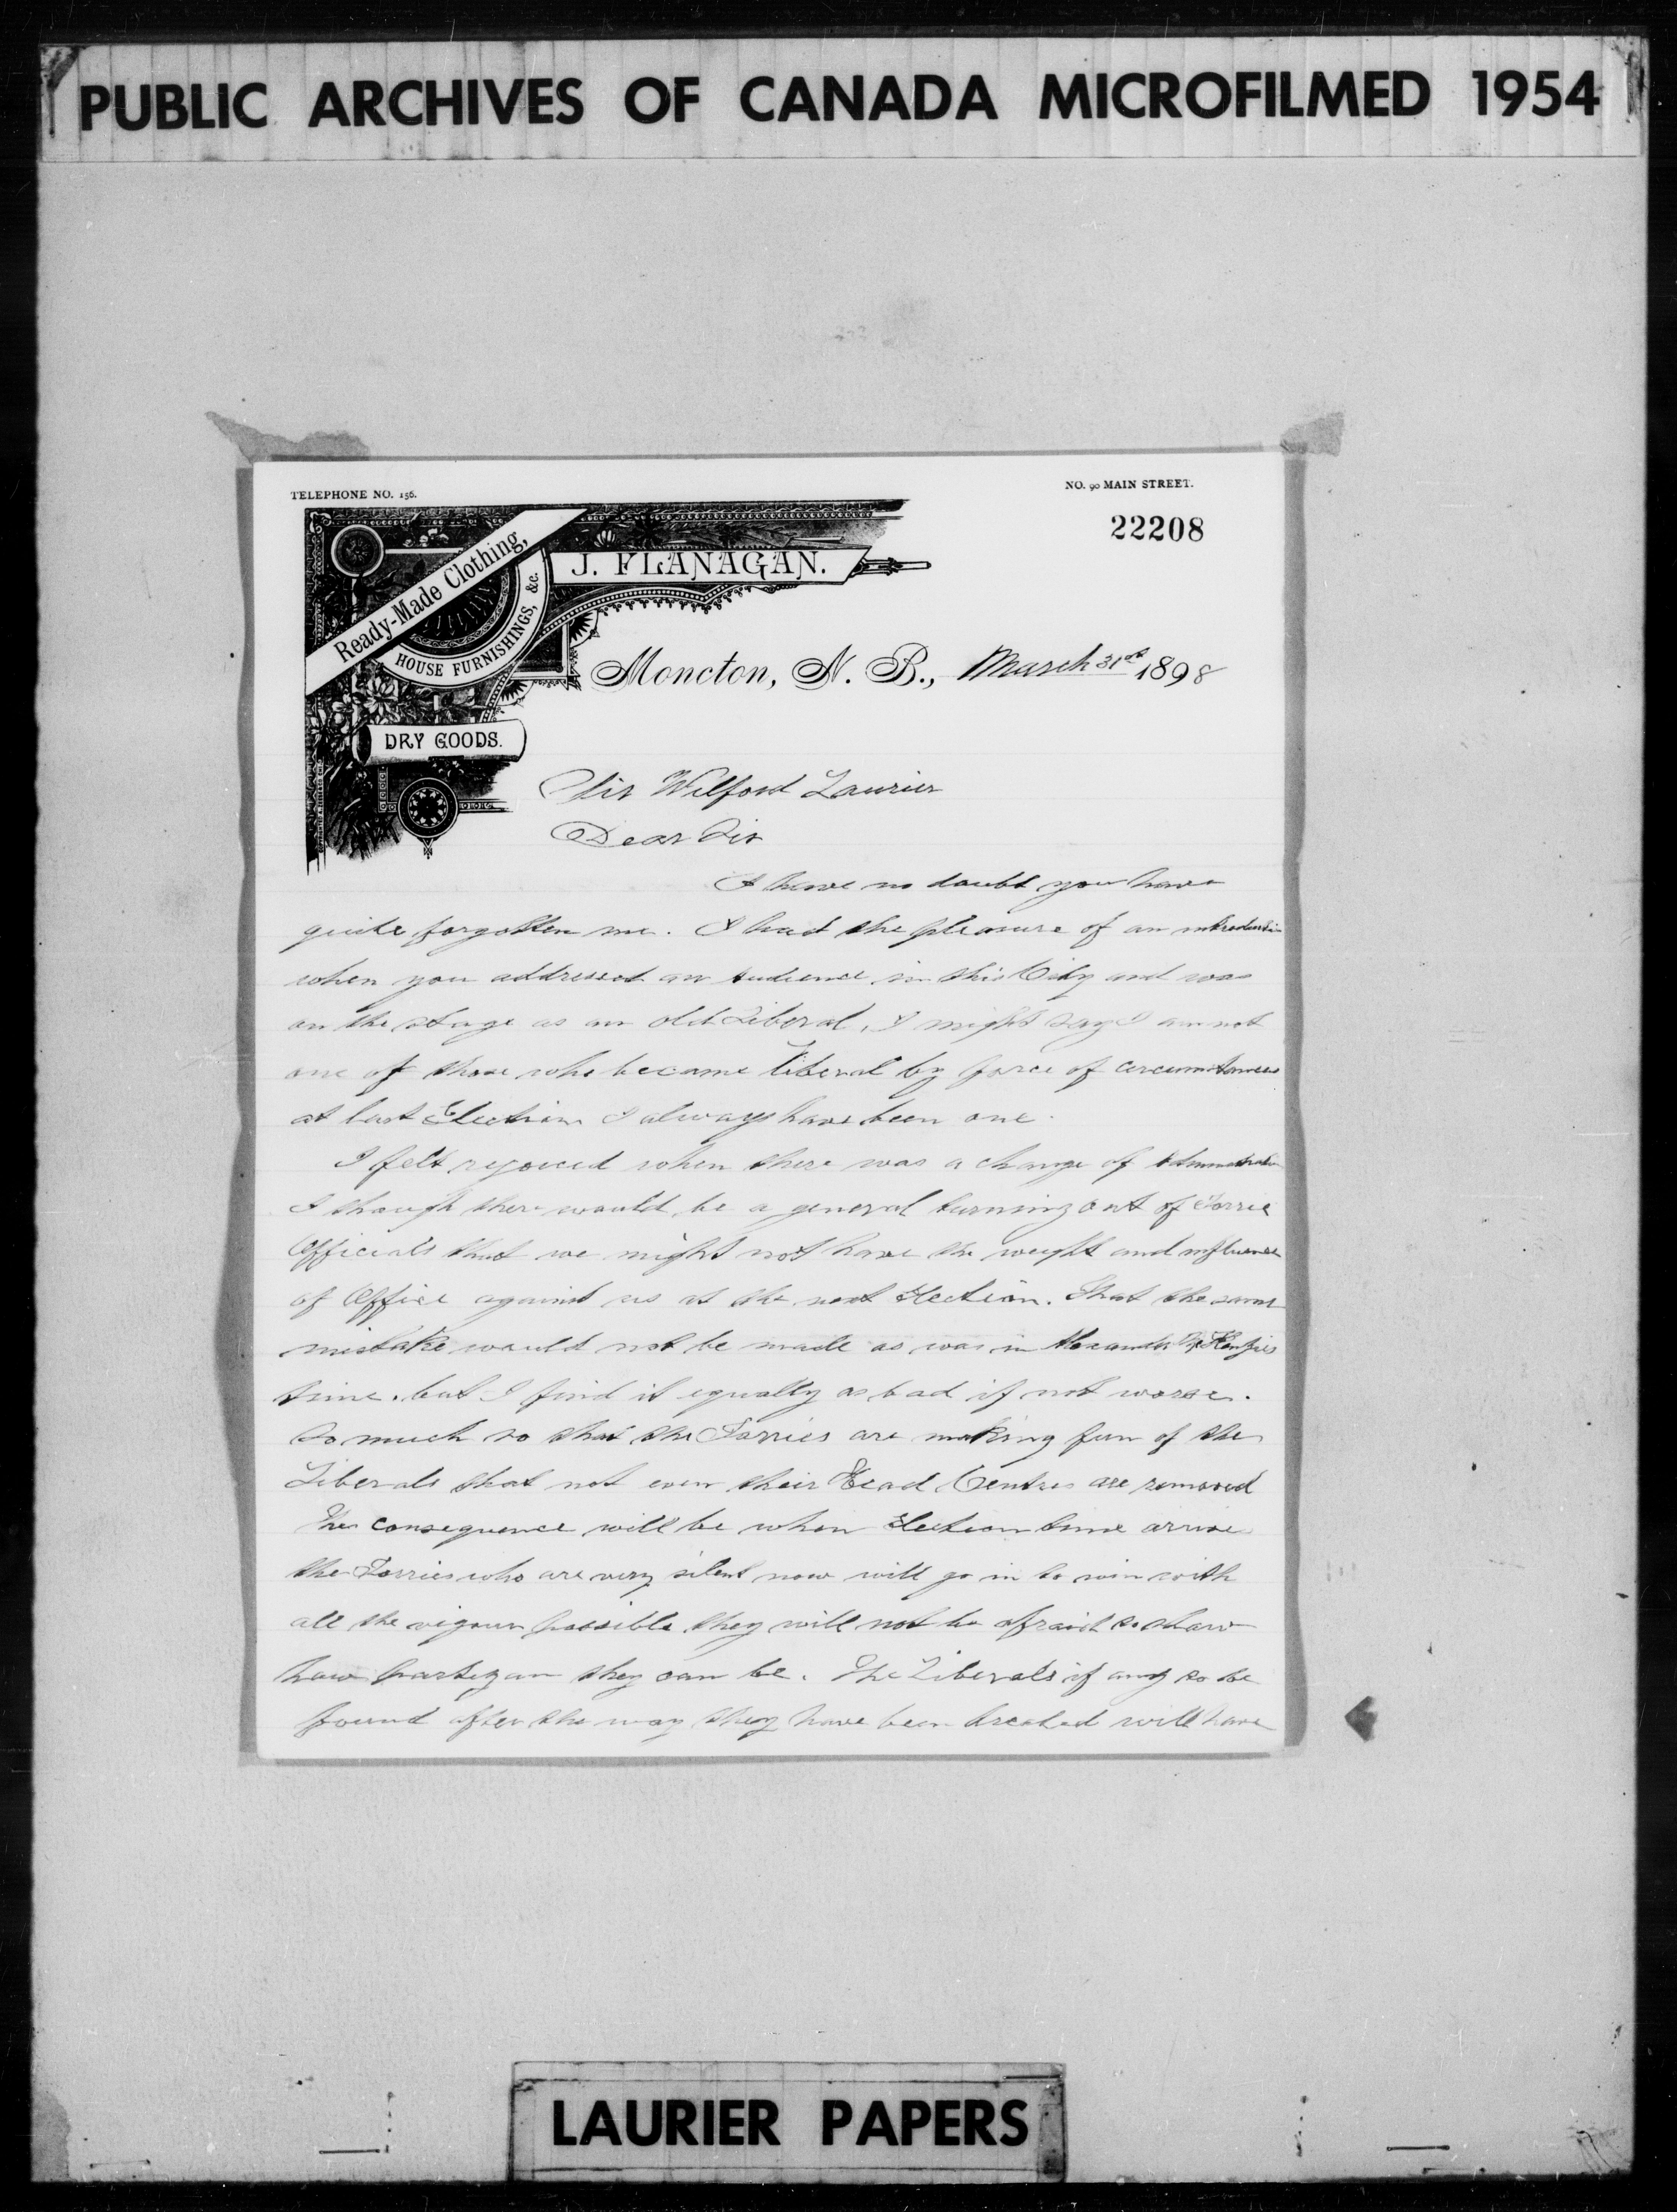 PUBLIC ARCHIVES OF CANADA MICROFILMED 1954
TELEPHONE NO. 156.
NO. 90 MAIN STREET.
22208
J. FLANAGAN.
Ready-Made Clothing,
HOUSE FURNISHINGS, &c.
DRY GOODS.
Moncton, N. B., March 31st 1898
Sir Wilford Laurier
Dear Sir
I have no doubt you have
quite forgotten me. I had the pleasure of an introduction
when you addressed an audience in this City and was
on the stage as an old Liberal, I might say I am not
one of those who became liberal by force of circumstances
at last Election I always have been one.
I felt rejoiced when there was a change of Administration
I though there would be a general turning out of Torrie
Officials that we might not have the weight and influence
of Office against us at the next Election. That the same
mistake would not be made as was in Alexander McKenzies
time. but I find it equally as bad if not worse.
So much so that the Torries are making fun of the
Liberals that not even their Head Centres are removed
The consequence will be when Election time arrive
the Torries who are very silent now will go in to win with
all the vigour possible they will not be afraid to show
how partizan they can be. The Liberals if any to be
found after the way they have been treated will have
LAURIER PAPERS